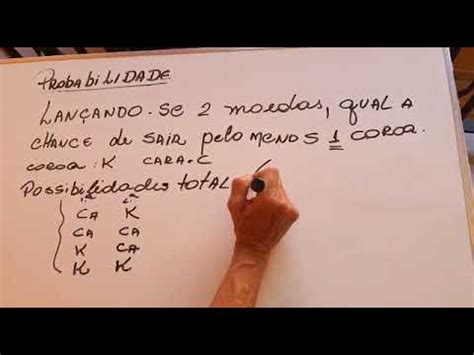 PROBABILIDADE
LANÇANDO-SE 2 moedas, QUAL A
CHANCE de SAIR pelo MENOS 1 COROA.
COROA: K CARA=C
POSSIBILIDADES TOTAL
CA K
CA CA
K CA
K K